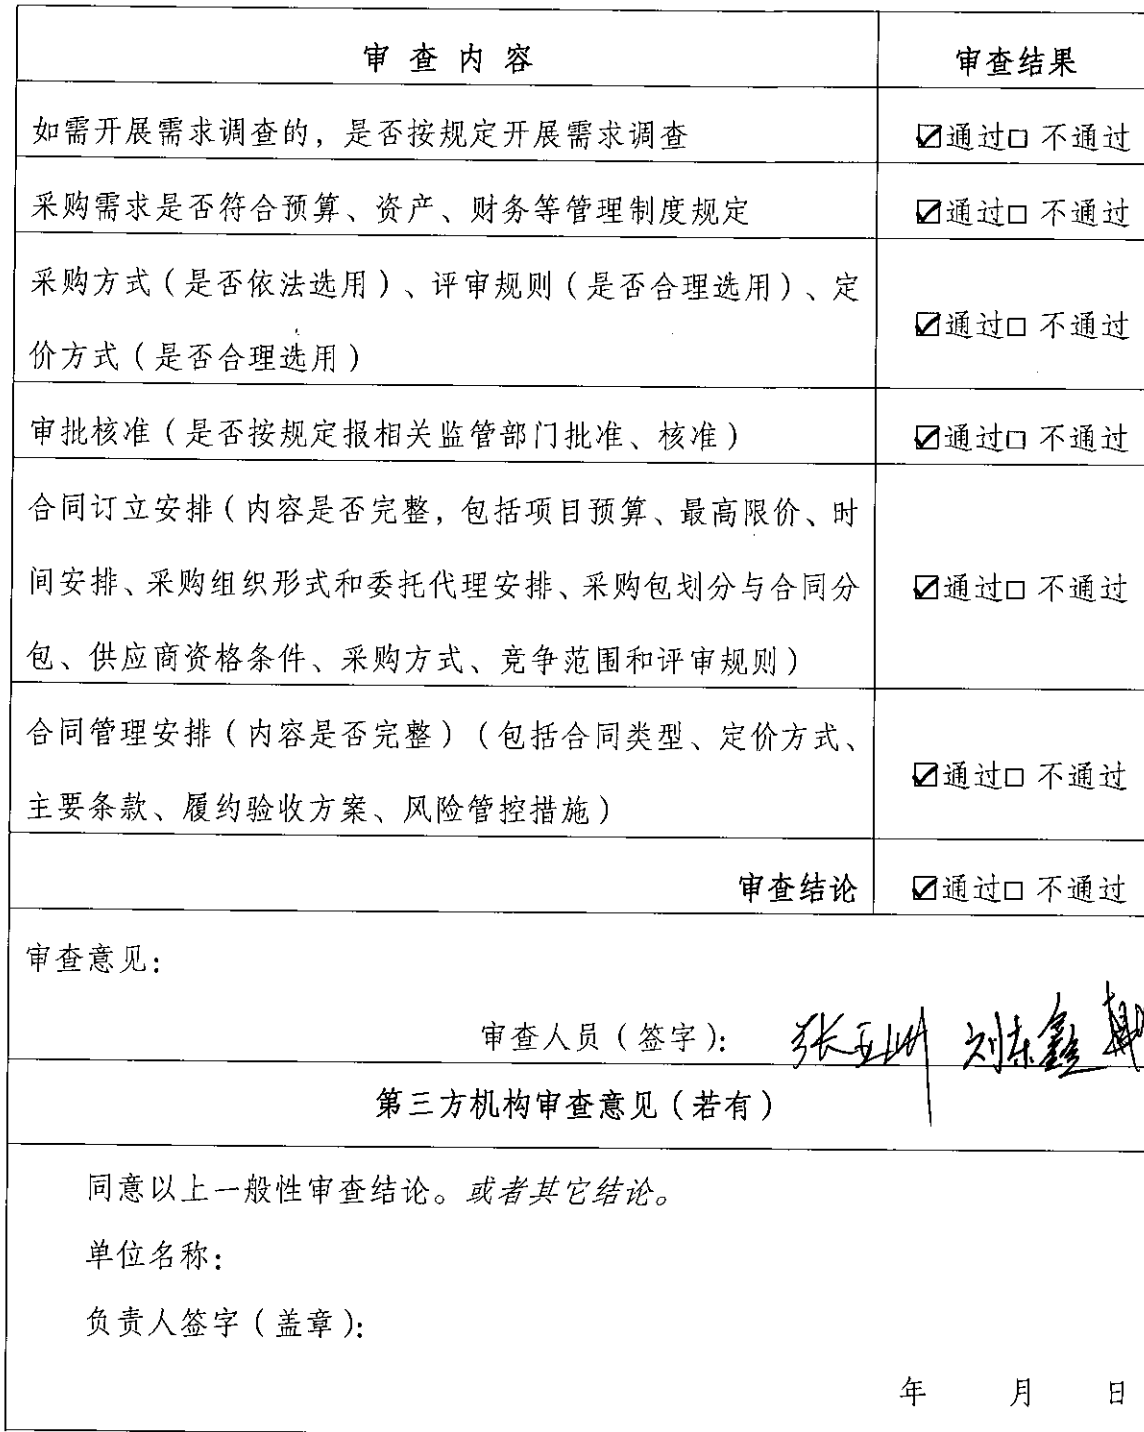 审查内容 审查结果
如需开展需求调查的，是否按规定开展需求调查 ☑通过□ 不通过
采购需求是否符合预算、资产、财务等管理制度规定 ☑通过□ 不通过
采购方式（是否依法选用）、评审规则（是否合理选用）、定
价方式（是否合理选用） ☑通过□ 不通过
审批核准（是否按规定报相关监管部门批准、核准） ☑通过□ 不通过
合同订立安排（内容是否完整，包括项目预算、最高限价、时
间安排、采购组织形式和委托代理安排、采购包划分与合同分 ☑通过□ 不通过
包、供应商资格条件、采购方式、竞争范围和评审规则）
合同管理安排（内容是否完整）（包括合同类型、定价方式、
主要条款、履约验收方案、风险管控措施） ☑通过□ 不通过
审查结论 ☑通过□ 不通过
审查意见：
审查人员（签字）： 张亚洲 刘东鑫
第三方机构审查意见（若有）
同意以上一般性审查结论。或者其它结论。
单位名称：
负责人签字（盖章）：
年 月 日